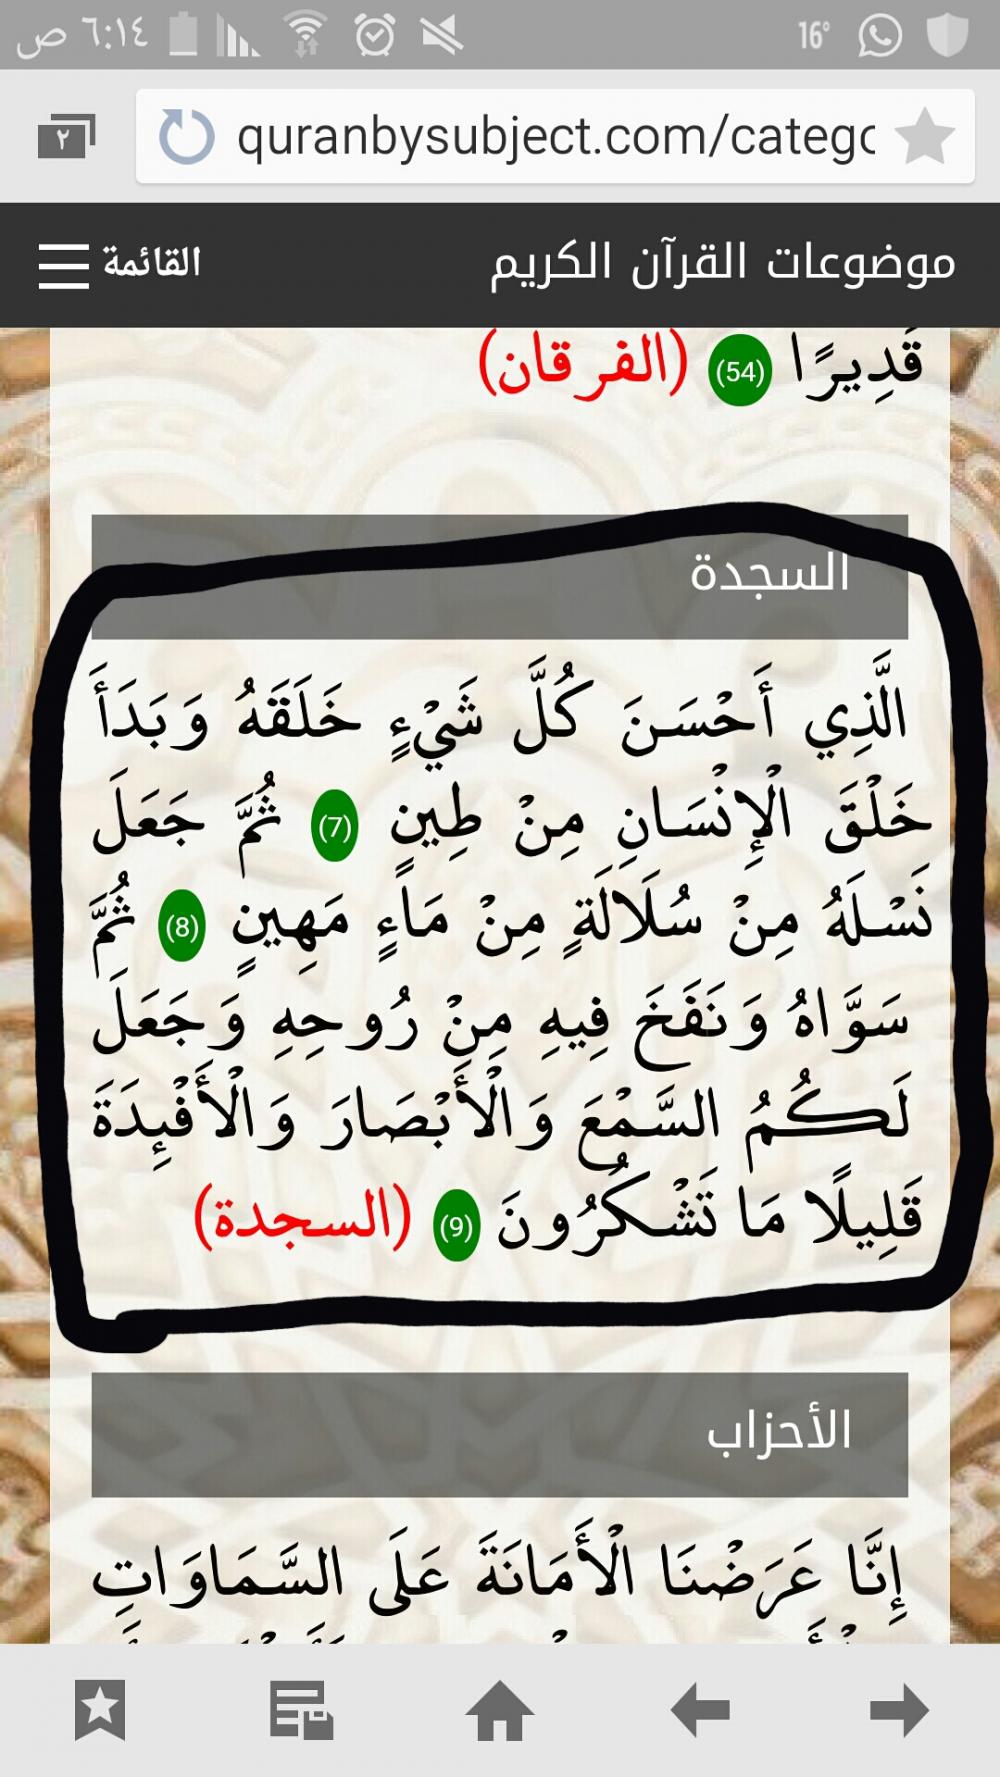 ٦:١٤ ص
16°
٢
quranbysubject.com/catego
موضوعات القرآن الكريم
القائمة
قَدِيرًا (54) (الفرقان)
السجدة
الَّذِي أَحْسَنَ كُلَّ شَيْءٍ خَلَقَهُ وَبَدَأَ
خَلْقَ الْإِنْسَانِ مِنْ طِينٍ (7) ثُمَّ جَعَلَ
نَسْلَهُ مِنْ سُلَالَةٍ مِنْ مَاءٍ مَهِينٍ (8) ثُمَّ
سَوَّاهُ وَنَفَخَ فِيهِ مِنْ رُوحِهِ وَجَعَلَ
لَكُمُ السَّمْعَ وَالْأَبْصَارَ وَالْأَفْئِدَةَ
قَلِيلًا مَا تَشْكُرُونَ (9) (السجدة)
الأحزاب
إِنَّا عَرَضْنَا الْأَمَانَةَ عَلَى السَّمَاوَاتِ